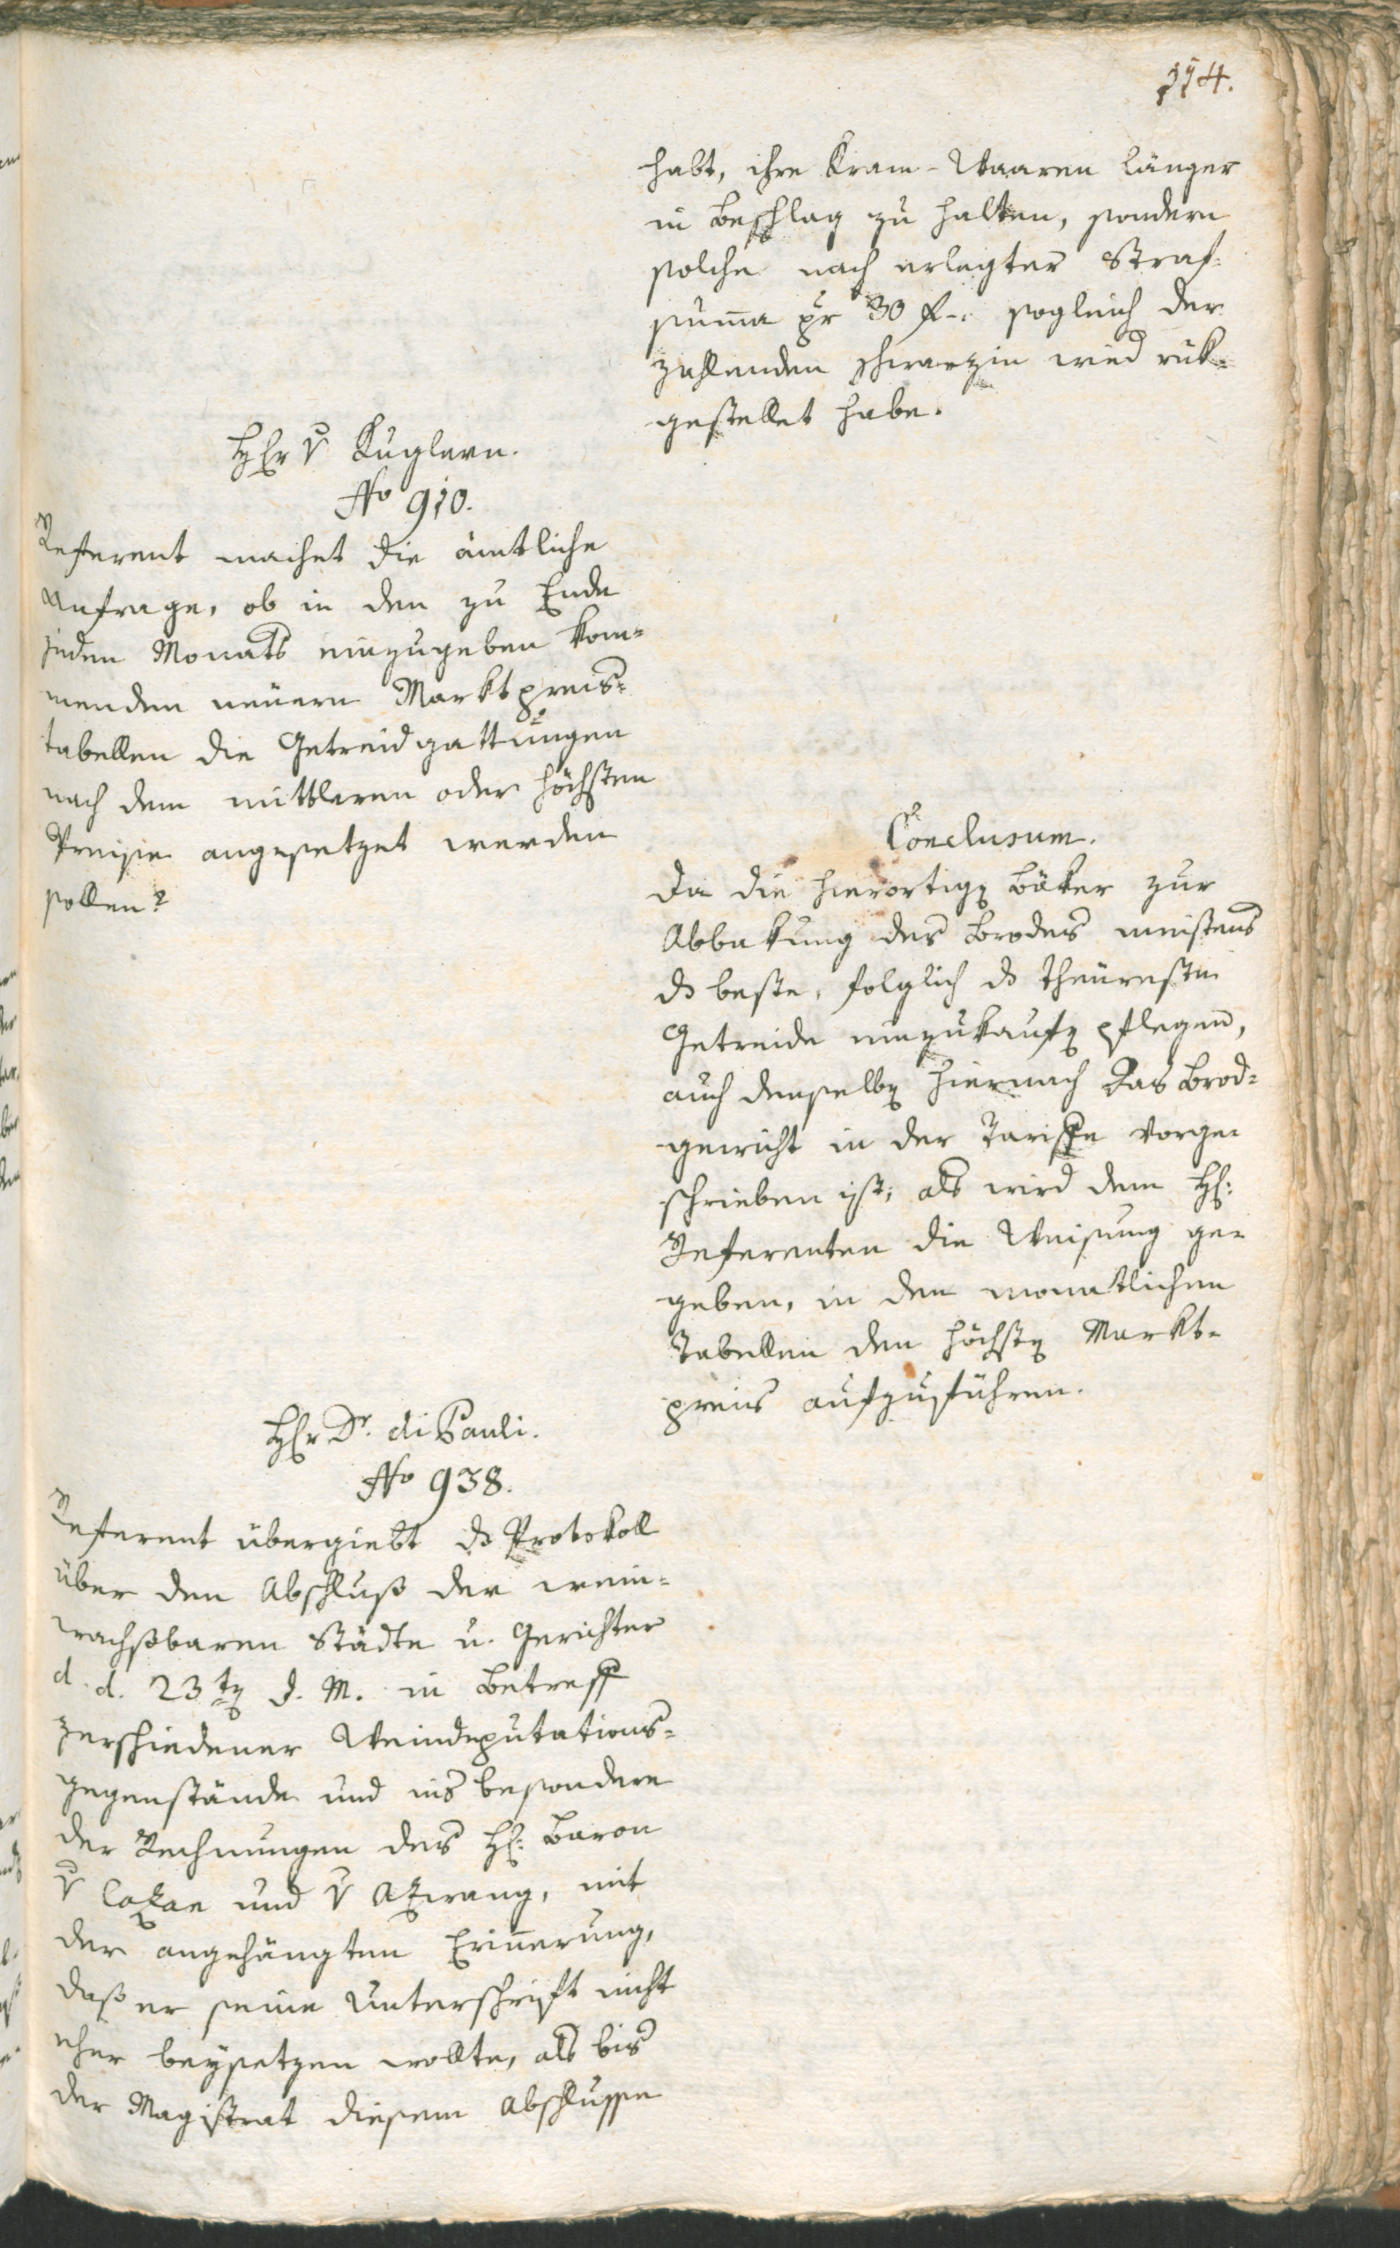 314.
habt, ihre Kram-Waaren länger
in Beschlag zu halten, sondern
solche nach erlegter Straf¬
sum̄a pr 30 f-: sogleich der
zahlenden Schwarzin wied rük¬
gestellet habe.
HEr v Kuglern.
No 910.
Referent machet die ämtliche
Anfrage, ob in den zu Ende
jeden Monats einzugeben kom¬
menden neüern Marktpreis¬
tabellen die Getreidgattungen
nach dem mittleren oder höchsten
Preise angesetzet werden
sollen?
Conclusum.
Da die hierortig Bäker zur
Abbakung des Brodes meistens
ds beste, folglich ds theüreste
Getreide einzukaufen pflegen,
auch denselben hiernach das Brod¬
gewicht in der Tariffe vorge¬
schrieben ist; als wird dem H:
Referenten die Weisung ge¬
geben, in den monatlichen
Tabellen den höchsten Markt¬
preis aufzuführen.
HEr Dr. di Pauli.
No 938.
Referent übergiebt ds Protokoll
über den Abschluß der wein¬
wachßbaren Städte u. Gerichter
d. d. 23ten d. M. in Betreff
verschiedener Weindeputations¬
gegenstände und ins besondere
der Rechnungen des H: Baron
v Cazan und v Azwang, mit
der angehängten Erin̄erung,
daß er seine Unterschrift nicht
eher beysetzen wollte, als bis
der Magistrat diesem Abschlusse